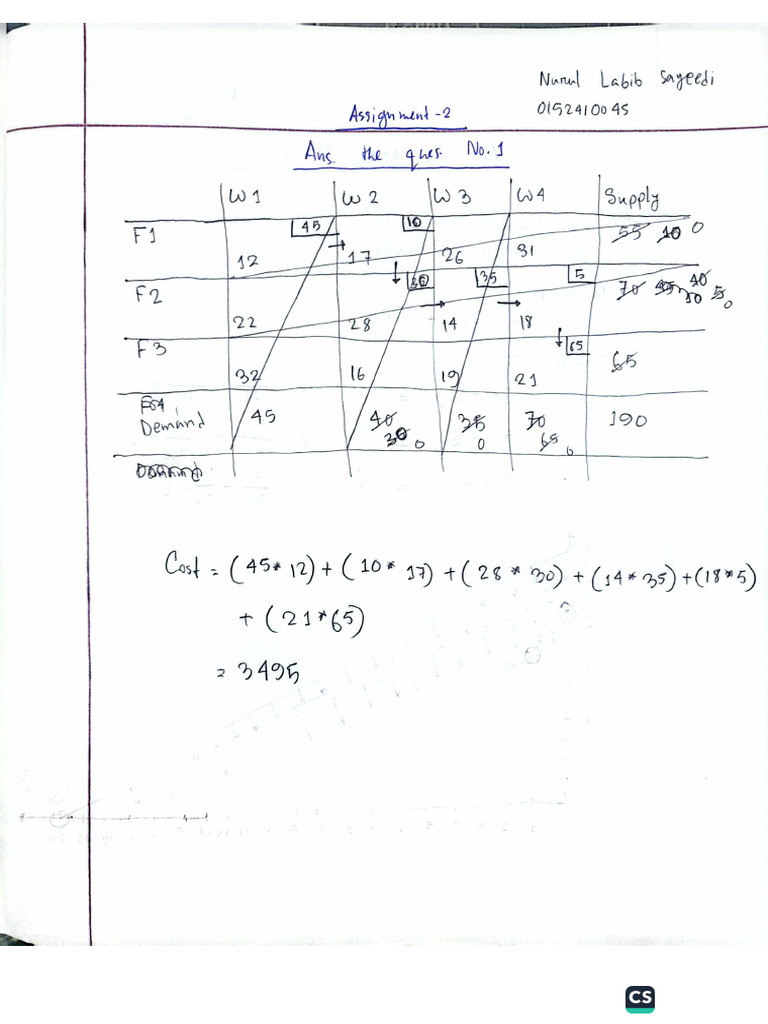 Nurul Labib Sayeedi
0152410045
Assignment-2
Ans. the ques. No. 1
W1 W2 W3 W4 Supply
45 10
F1 55 10 0
12 17 26 31
30 35 5
F2 70 40 5 0
22 28 14 18
F3 65 65
32 16 19 21
Demand 45 40 35 70 190
30 0 0 65 0
Cost = (45*12) + (10*17) + (28*30) + (14*35) + (18*5)
+ (21*65)
= 3495
CS